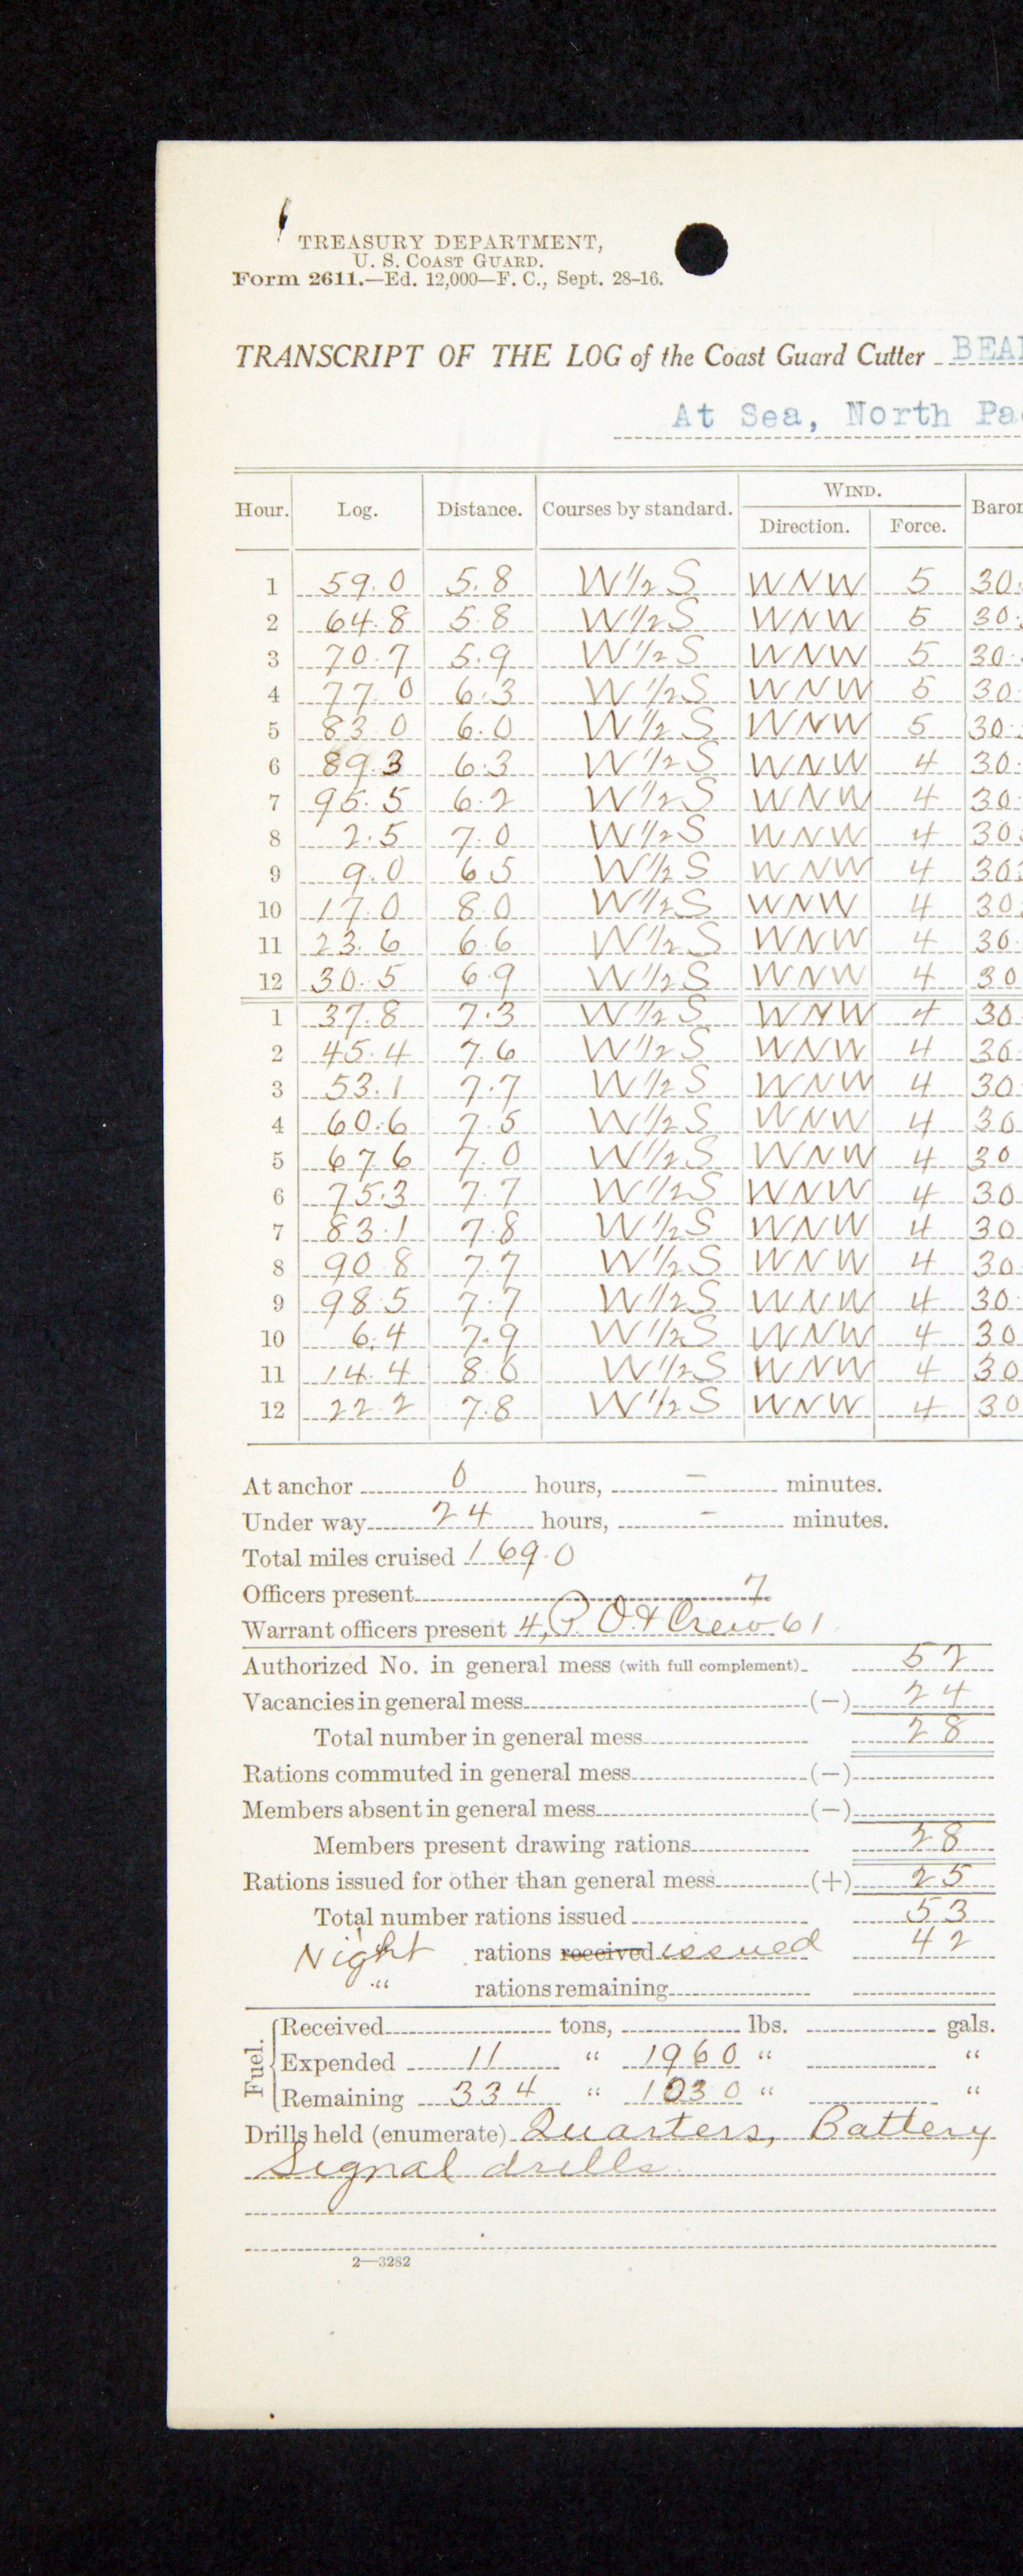 TREASURY DEPARTMENT,
U. S. COAST GUARD.
Form 2611.—Ed. 12,000—F. C., Sept. 28-16.
TRANSCRIPT OF THE LOG of the Coast Guard Cutter BEA
At Sea, North Pa
Hour. Log. Distance. Courses by standard. WIND. Direction. Force. Baro
1 59.0 5.8 W½S WNW 5 30.
2 64.8 5.8 W½S WNW 5 30.
3 70.7 5.9 W½S WNW 5 30.
4 77.0 6.3 W½S WNW 5 30
5 83.0 6.0 W½S WNW 5 30.
6 89.3 6.3 W½S WNW 4 30.
7 95.5 6.2 W½S WNW 4 30.
8 2.5 7.0 W½S WNW 4 30.
9 9.0 6.5 W½S WNW 4 30.
10 17.0 8.0 W½S WNW 4 30.
11 23.6 6.6 W½S WNW 4 30.
12 30.5 6.9 W½S WNW 4 30
1 37.8 7.3 W½S WNW 4 30
2 45.4 7.6 W½S WNW 4 30.
3 53.1 7.7 W½S WNW 4 30
4 60.6 7.5 W½S WNW 4 30
5 67.6 7.0 W½S WNW 4 30
6 75.3 7.7 W½S WNW 4 30
7 83.1 7.8 W½S WNW 4 30
8 90.8 7.7 W½S WNW 4 30
9 98.5 7.7 W½S WNW 4 30
10 6.4 7.9 W½S WNW 4 30
11 14.4 8.0 W½S WNW 4 30
12 22.2 7.8 W½S WNW 4 30
At anchor 0 hours, – minutes.
Under way 24 hours, – minutes.
Total miles cruised 169.0
Officers present 7
Warrant officers present 4, P. O. & Crew 61
Authorized No. in general mess (with full complement) 52
Vacancies in general mess (—) 24
Total number in general mess 28
Rations commuted in general mess (—)
Members absent in general mess (—)
Members present drawing rations 28
Rations issued for other than general mess (+) 25
Total number rations issued 53
Night rations received issued 42
" rations remaining
Fuel. Received tons, lbs. gals.
Expended 11 " 1960 " "
Remaining 334 " 1030 " "
Drills held (enumerate) Quarters, Battery
Signal drills
2—3282